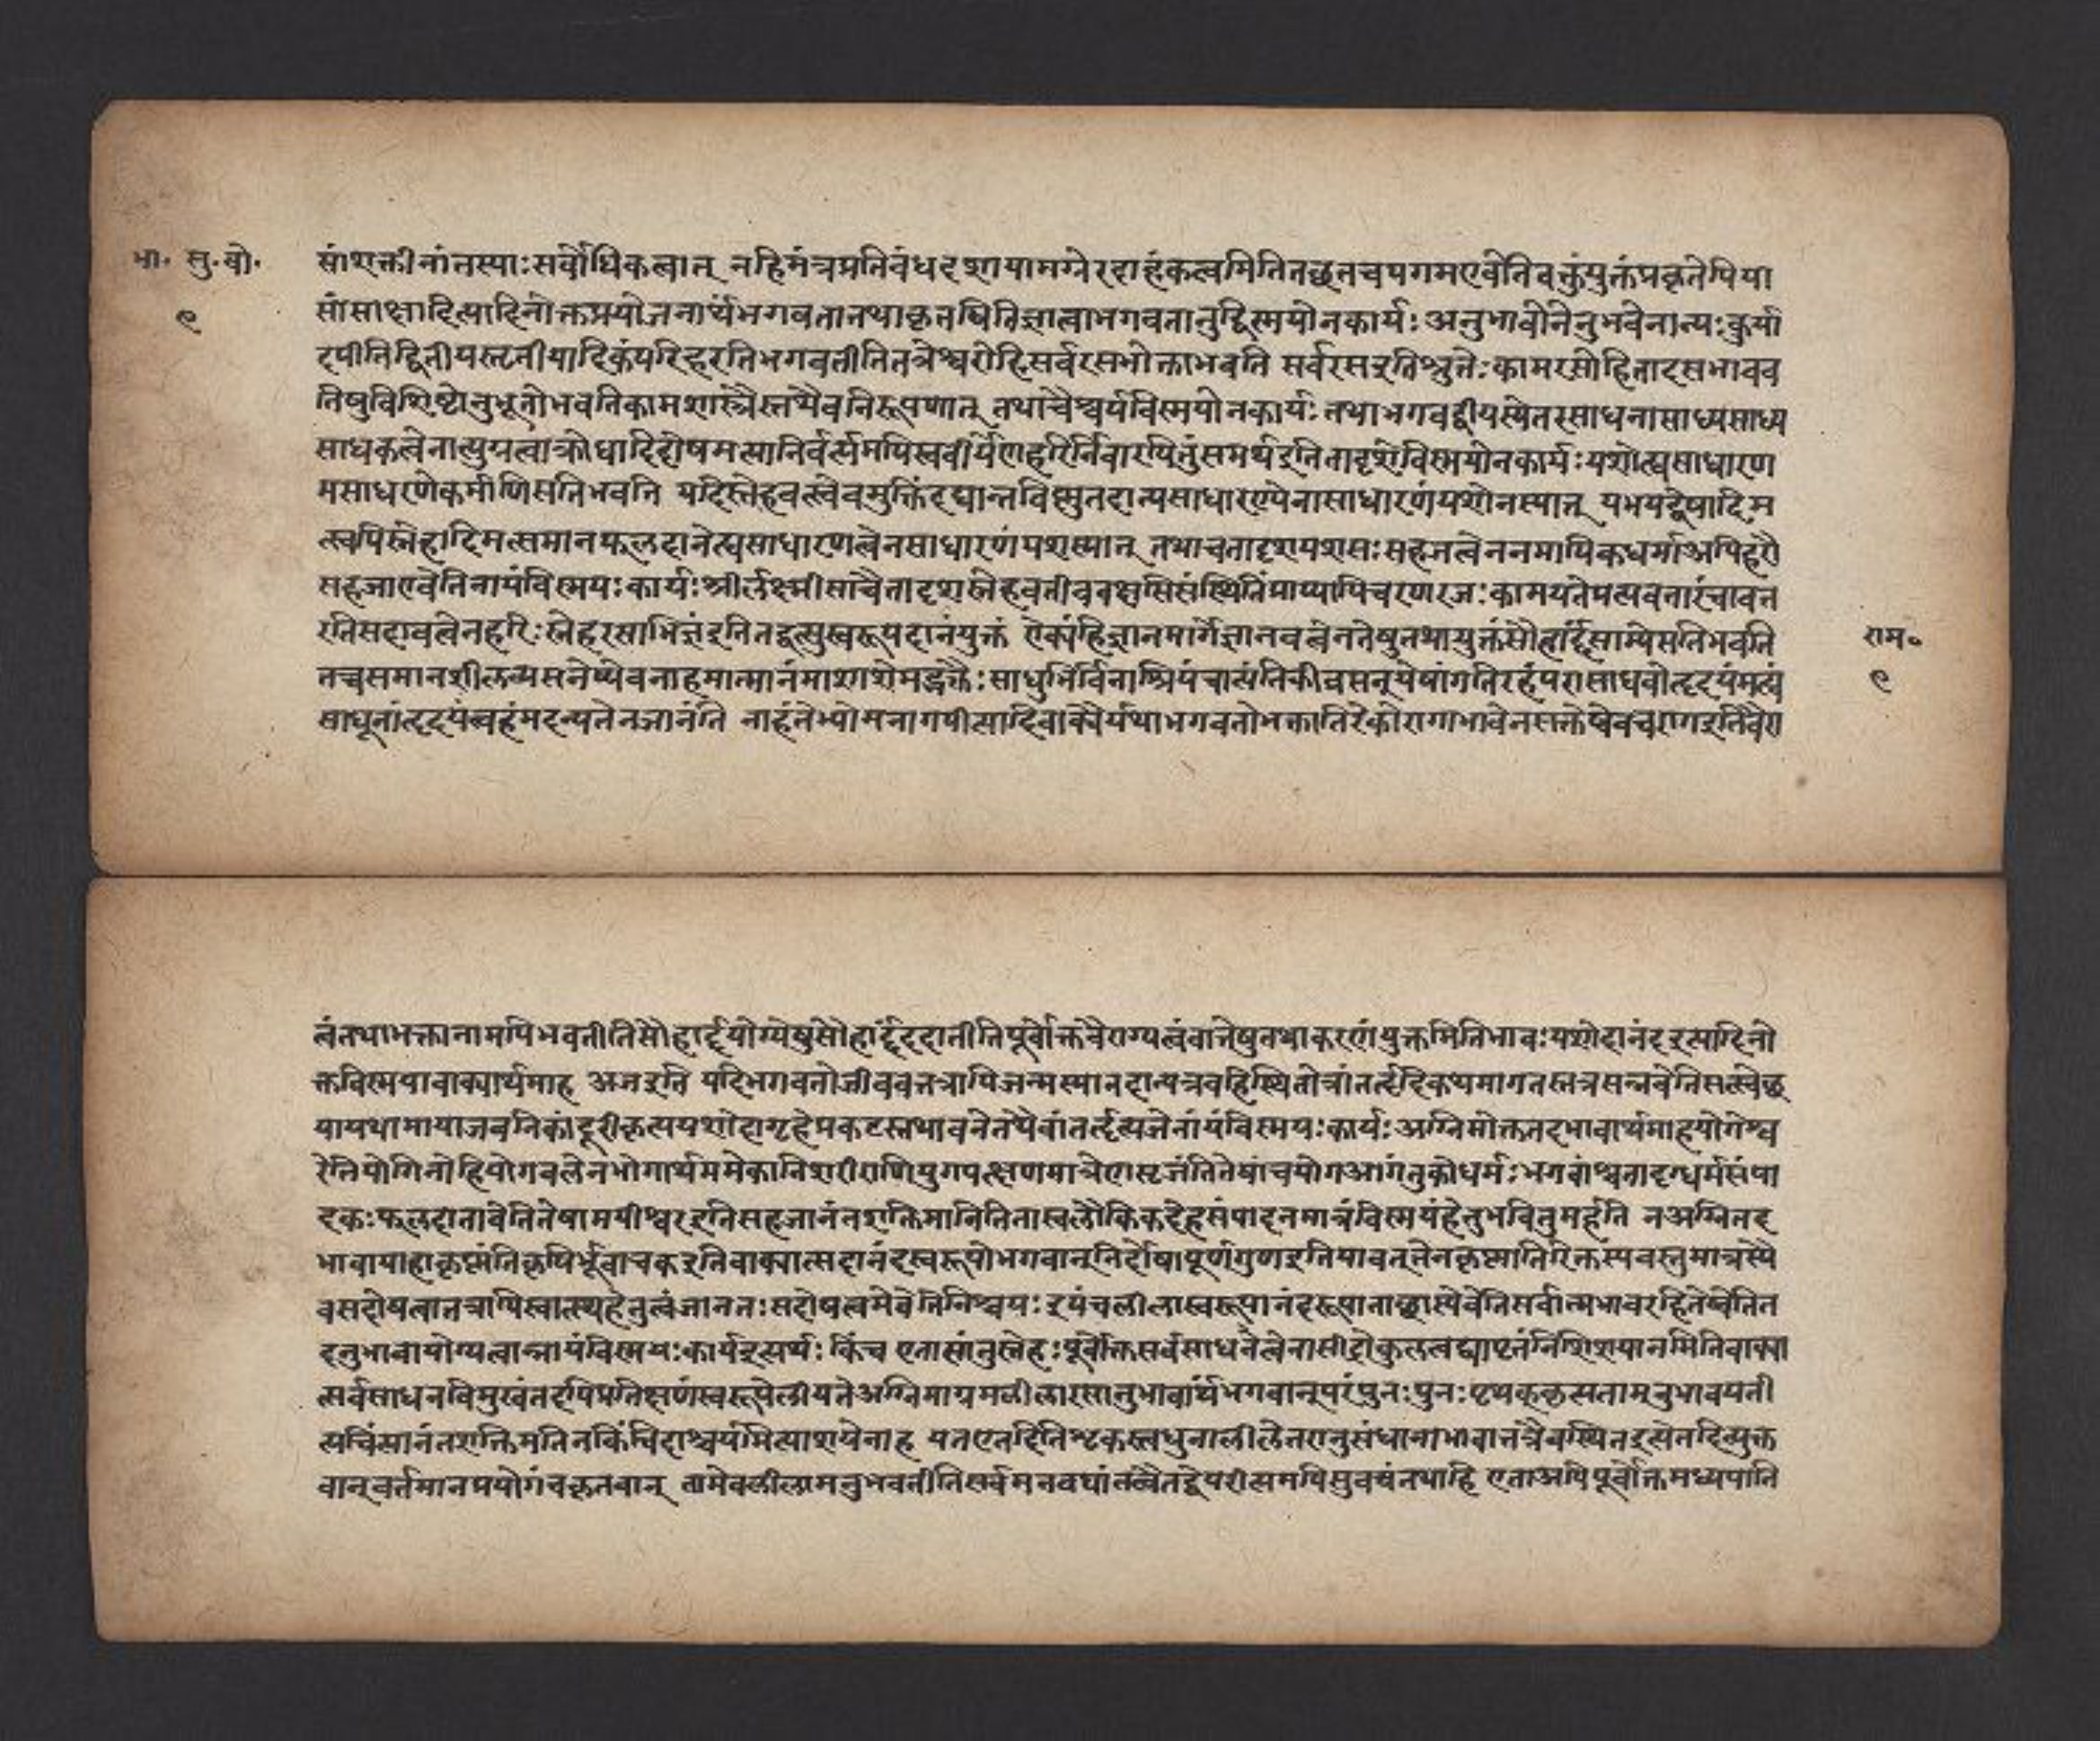 भा. सु.बो.
९
सांशक्तीनांतस्याःसर्वाधिकत्वात् नहिमंत्रप्रतिबंधदशायामग्नेरदाहकत्वमितितच्छतचपगमएवेतिवक्तुंयुक्तंप्रकृतेपिया
सांसाक्षादित्यादिनोक्तप्रयोजनार्थंभगवतातथाकृतमितिज्ञात्वाभगवतानुद्विस्मयोनकार्यः अनुभावोनेनुभवेनान्यःकुर्या
दपीतिद्वितीयस्तृतीयादिकंपरिहरतिभगवतीतितत्रेश्वरोहिसर्वरसभोक्ताभवति सर्वरसइतिश्रुतेःकामरसोहितादृसभावव
तिषुविशिष्टोनुभूतोभवतिकामशास्त्रैस्तथैवनिरूपणात् तथाचैश्वर्यविस्मयोनकार्यः तथाभगवद्वीर्यस्येतरसाधनासाध्यसाध्य
साधकत्वेनात्युग्रत्वात्क्रोधादिदोषमत्यानिर्वर्त्यमपिस्ववीर्येणहरिर्निवारयितुंसमर्थइतितादृशेविस्मयोनकार्यःयशोत्वसाधारण
मसाधरणेकर्मणिसतिभवति यदिस्नेहवत्स्वेवमुक्तिंदद्यान्नविस्मृतदान्यसाधारण्येनासाधारणंयशोनस्यात् यभयद्वेषादिम
त्स्वपिस्नेहादिमत्समानफलदानेत्वसाधारणत्वेनसाधारणंयशस्यात् तथाचतादृशयशसःसहजत्वेननमायिकधर्माअपिहरौ
सहजाएवेतिनायंविस्मयःकार्यः श्रीर्लक्ष्मीसाचैतादृशस्नेहवतीववक्षसिसंस्थितिंप्राप्यापिचरणरजःकामयतेप्रत्यवतारंचावत
रतिसदावत्वेनहरिःस्नेहरसाभिज्ञइतितद्वत्सुस्वरूपदानंयुक्तं ऐक्यंहिज्ञानमार्गेज्ञानवत्वेनतेषुतथायुक्तंसौहार्दंसाम्येसतिभवति
तच्चसमानशीलव्यसनेष्वेवनाहमात्मानंमाशासेमद्भक्तैःसाधुभिर्विनाश्रियंचात्यंतिकींब्रह्मन्येषांगतिरहंपरासाधवोहृदयंमह्यं
साधूनांहृदयंत्वहंमदन्यत्तेनजानंति नाहंतेभ्योमनागपीत्यादिवाक्यैर्यथाभगवतोभक्तातिरेकोरागाभावेनसक्तेष्वेवचरागइतिवैरा
राम॰
९
त्वंतथाभक्तानामपिभवतीतिसौहार्दयोग्येषुसौहार्दंददातीतिपूर्वोक्तवैराग्यत्वंवातेषुतथाकरणंयुक्तमितिभावःयशोदानंदइत्यादिनो
क्तविस्मयाबाक्यार्थमाह अजइति यदिभगवतोजीववत्तत्रापिजन्मस्यात्तदान्यत्रवहिस्थितोत्रांतर्हृदिकथमागतस्तत्रसन्नेवेतिसत्स्वेच्छ
यायथामायाजवनिकांदूरीकृत्ययशोदागृहेप्रकटस्तथावनेतथैवांतर्हृत्यजेनायंविस्मयःकार्यः अग्निमोक्ततदभावार्थमाहयोगेश्व
रेतियोगिनोहियोगबलेनभोगार्थमनेकानिशरीराणियुगपत्क्षणमात्रेणसृजंतितेषांचयोगआगंतुकोधर्मःभगवांश्चतादृग्धर्मसंपा
दकःफलदाताचेतितेषामपीश्वरइतिसहजानंतशक्तिमानितितास्वलौकिकदेहसंपादनमात्रंविस्मयहेतुभवितुमर्हति नअग्निमद
भावायाहाकृष्णंतिकृषिर्भूवाचकइतिवाक्यात्सदानंदस्वरूपोभगवान्निर्दोषपूर्णगुणइतियावत्तेनकृष्णातिरिक्तस्यवस्तुमात्रस्यै
वसदोषत्वात्तत्रापिस्वास्थ्यहेतुत्वंजानतःसदोषत्वमेवेतिनिश्चयःइयंचलीलास्वरूपानंदरूपातादृष्वेवेतिसर्वात्मभावरहितेष्वेतित
दनुभावायोग्यत्वान्नायंविस्मयःकार्यइत्यर्थः किंच एतासांतुस्नेहःपूर्वोक्तसर्वसाधनत्वेनासीद्गोकुलत्वद्व्यापृतंनिशिशयानमितिवाक्या
त्सर्वसाधनविमुखंतदपिप्रतिक्षणंस्वरूपेलीयतेअग्निमाग्रमलीलारसानुभावार्थंभगवान्परंपुनःपुनःपृथक्कृत्यतामनुभावयती
त्यचिंत्यानंतशक्तिमतिनकिंचिदाश्चर्यमित्याशयेनाह यतएतदितिमुक्तस्त्वधुनालीलेतरानुसंधानाभावात्तत्रैवस्थितइत्येतदित्युक्त
वान्वर्तमानप्रयोगंचकृतवान् तामेवलीलामनुभवतीतिसर्वमनवद्यंतत्वैतद्वैपरीत्यमपिसुवचंतथाहि एताअपिपूर्वोक्तमध्यपाति